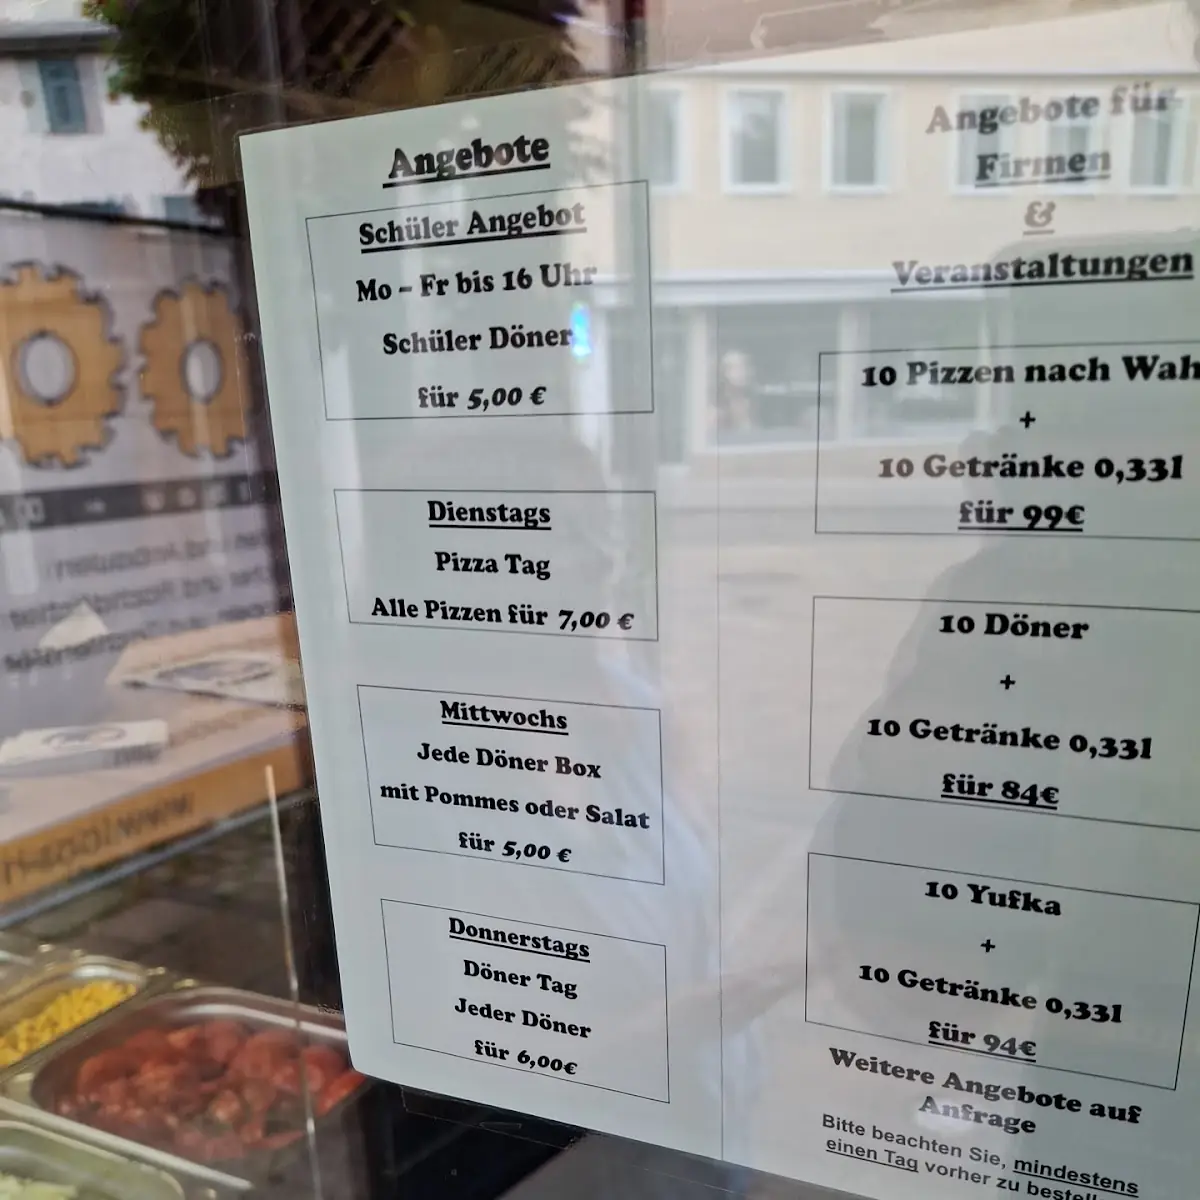 Angebote
Schüler Angebot
Mo – Fr bis 16 Uhr
Schüler Döner
für 5,00 €
Dienstags
Pizza Tag
Alle Pizzen für 7,00 €
Mittwochs
Jede Döner Box
mit Pommes oder Salat
für 5,00 €
Donnerstags
Döner Tag
Jeder Döner
für 6,00€
Angebote für
Firmen
&
Veranstaltungen
10 Pizzen nach Wah
+
10 Getränke 0,33l
für 99€
10 Döner
+
10 Getränke 0,33l
für 84€
10 Yufka
+
10 Getränke 0,33l
für 94€
Weitere Angebote auf
Anfrage
Bitte beachten Sie, mindestens
einen Tag vorher zu bestell